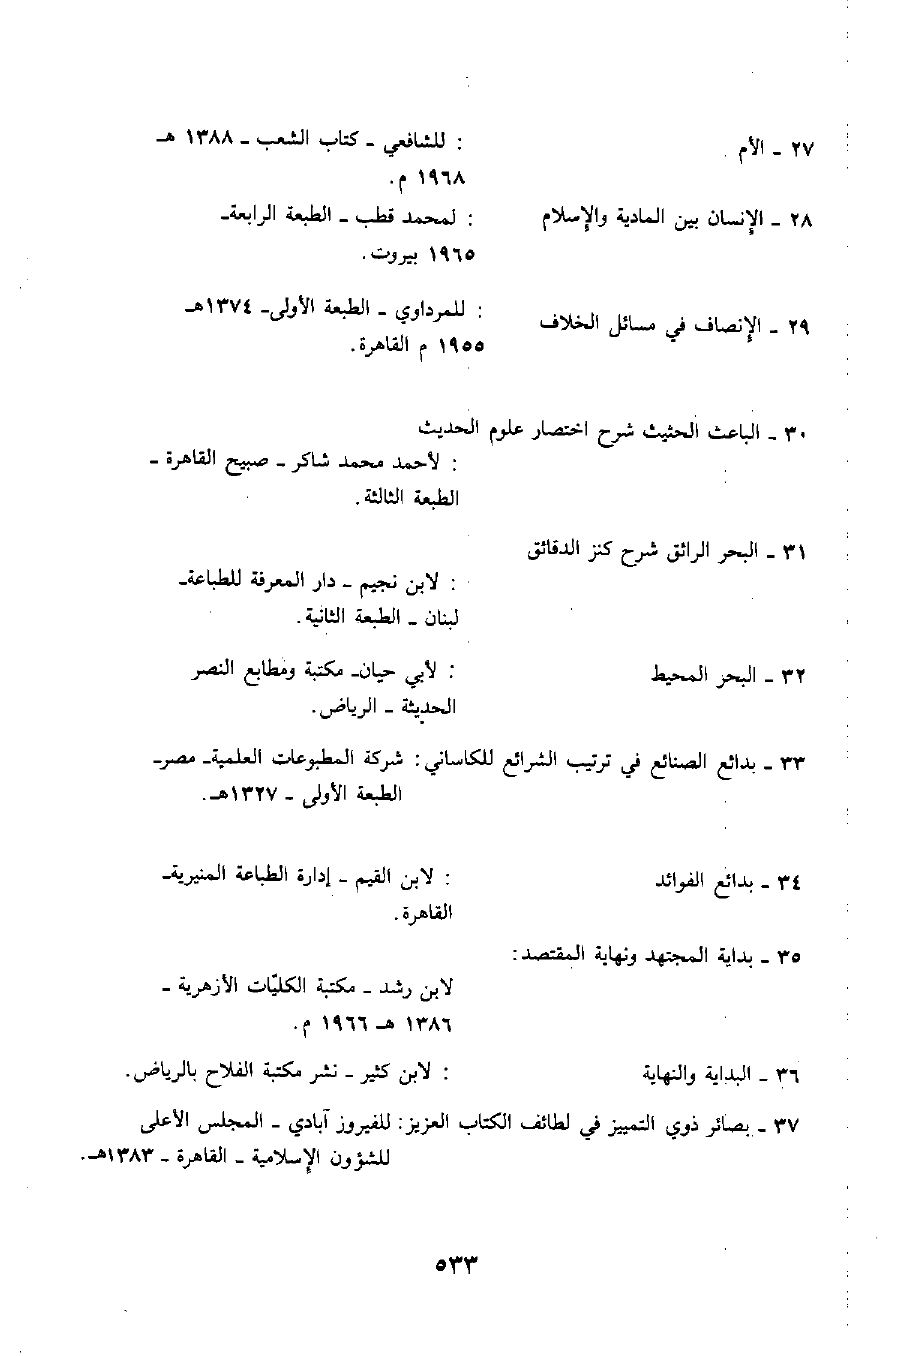 ٢٧ - الأم : للشافعي - كتاب الشعب - ١٣٨٨ هـ
١٩٦٨ م.
٢٨ - الإنسان بين المادية والإسلام : لمحمد قطب - الطبعة الرابعة-
١٩٦٥ بيروت.
٢٩ - الإنصاف في مسائل الخلاف : للمرداوي - الطبعة الأولى- ١٣٧٤هـ
١٩٥٥ م القاهرة.
٣٠ - الباعث الحثيث شرح اختصار علوم الحديث
: لأحمد محمد شاكر - صبيح القاهرة -
الطبعة الثالثة.
٣١ - البحر الرائق شرح كنز الدقائق
: لابن نجيم - دار المعرفة للطباعة-
لبنان - الطبعة الثانية.
٣٢ - البحر المحيط : لأبي حيان- مكتبة ومطابع النصر
الحديثة - الرياض.
٣٣ - بدائع الصنائع في ترتيب الشرائع للكاساني: شركة المطبوعات العلمية- مصر-
الطبعة الأولى - ١٣٢٧هـ.
٣٤ - بدائع الفوائد : لابن القيم - إدارة الطباعة المنيرية-
القاهرة.
٣٥ - بداية المجتهد ونهاية المقتصد:
لابن رشد - مكتبة الكليّات الأزهرية -
١٣٨٦ هـ ١٩٦٦ م.
٣٦ - البداية والنهاية : لابن كثير - نشر مكتبة الفلاح بالرياض.
٣٧ - بصائر ذوي التمييز في لطائف الكتاب العزيز: للفيروز آبادي - المجلس الأعلى
للشؤون الإسلامية - القاهرة - ١٣٨٣هـ.
٥٣٣